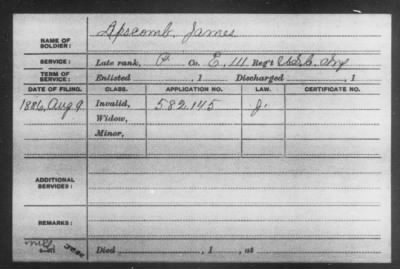 NAME OF SOLDIER: Apscomb, James
SERVICE: Late rank, P. Co. E, 111 Reg't U.S.C. Inf
TERM OF SERVICE: Enlisted , 1 Discharged , 1
DATE OF FILING. CLASS. APPLICATION NO. LAW. CERTIFICATE NO.
1886, Aug 9 Invalid, 582.145 J.
Widow,
Minor,
ADDITIONAL SERVICES:
REMARKS:
Died , 1 , at